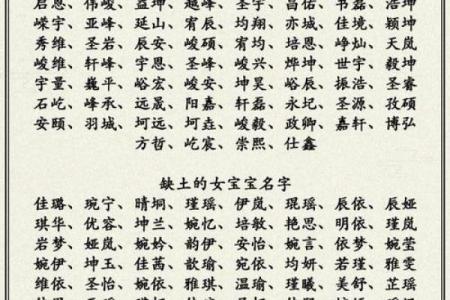 启恩、伟峻、益坤、越峰、圣宇、昌佑、韦磊、浩坤
嵘宇、亚峰、延山、宥辰、均翔、亦城、佳境、颖坤
秀维、圣岩、辰安、峻硕、宥均、培恩、峥灿、天岚
峻维、轩峰、宇恩、圣峰、峻兴、烨坤、世宇、毅坤
宇量、巍平、峪宏、峻安、坤昊、峪辰、振浩、圣睿
石屹、峰承、远晟、阳嘉、轩磊、永圮、圣源、孜硕
安颐、羽城、坷远、坷垚、峻毅、政卿、嘉轩、博弘
方哲、屹宸、崇熙、仕鑫
缺土的女宝宝名字
佳璐、琬宁、晴垌、瑾瑶、伊岚、琨瑶、辰依、辰娅
琪华、优容、坤兰、婉忆、培敏、艳思、明依、瑾岚
岩梦、娅岚、婉妗、韵伊、安怡、婉言、依梦、婉莹
婉伊、坤玉、佳茜、歆瑜、宛依、均妍、若瑾、安瑶
维依、圣怡、婉依、雅琪、温瑜、瑾曦、美舒、芷瑶